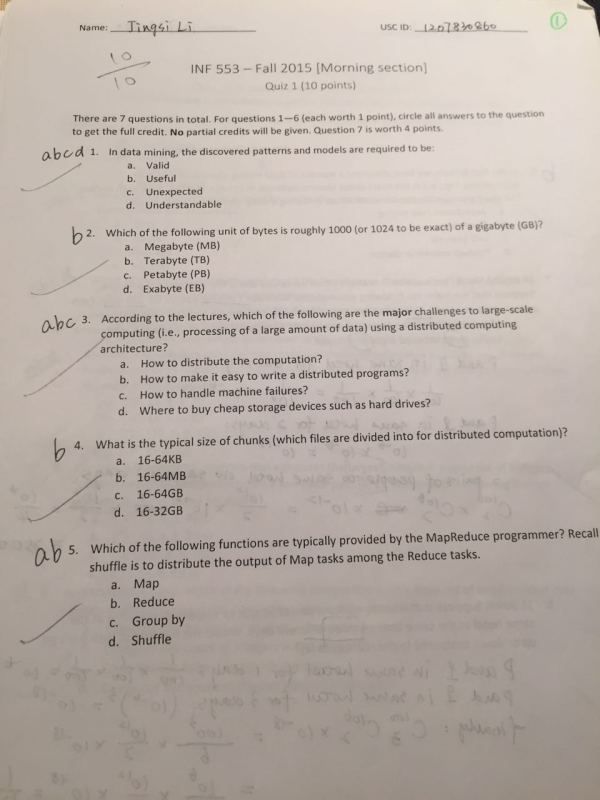 Name: Jingsi Li USC ID: 1207830860 1
10
10
INF 553 – Fall 2015 [Morning section]
Quiz 1 (10 points)
There are 7 questions in total. For questions 1—6 (each worth 1 point), circle all answers to the question
to get the full credit. No partial credits will be given. Question 7 is worth 4 points.
abcd 1. In data mining, the discovered patterns and models are required to be:
a. Valid
b. Useful
c. Unexpected
d. Understandable
b 2. Which of the following unit of bytes is roughly 1000 (or 1024 to be exact) of a gigabyte (GB)?
a. Megabyte (MB)
b. Terabyte (TB)
c. Petabyte (PB)
d. Exabyte (EB)
abc 3. According to the lectures, which of the following are the major challenges to large-scale
computing (i.e., processing of a large amount of data) using a distributed computing
architecture?
a. How to distribute the computation?
b. How to make it easy to write a distributed programs?
c. How to handle machine failures?
d. Where to buy cheap storage devices such as hard drives?
b 4. What is the typical size of chunks (which files are divided into for distributed computation)?
a. 16-64KB
b. 16-64MB
c. 16-64GB
d. 16-32GB
ab 5. Which of the following functions are typically provided by the MapReduce programmer? Recall
shuffle is to distribute the output of Map tasks among the Reduce tasks.
a. Map
b. Reduce
c. Group by
d. Shuffle